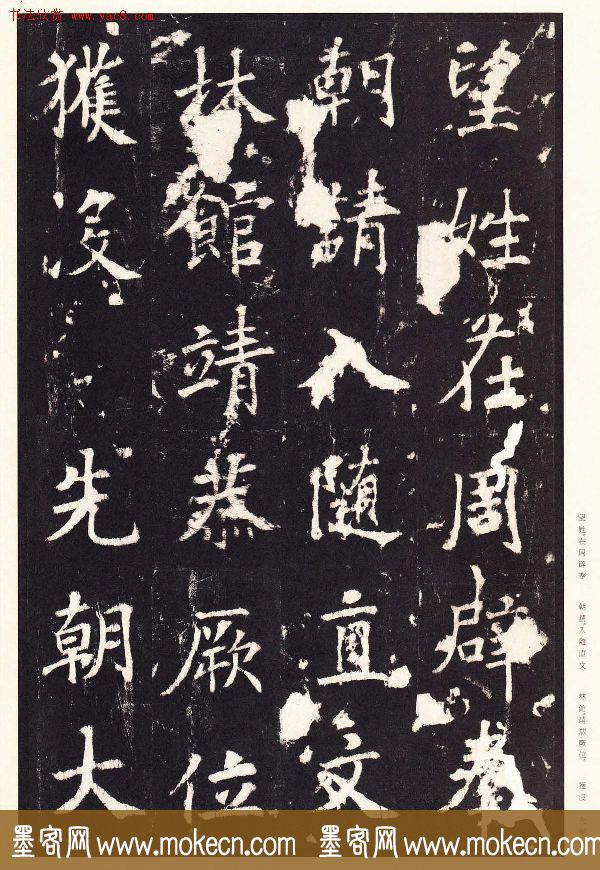 书法欣赏 www.yac8.com
望姓在周辟奉
朝請入隨直文
林館靖恭厥位
獲没先朝大
望姓。在周辟奉 朝請。入隨直文 林館。靖恭厥位。 獲没
墨客网 www.mokecn.com 墨客网 www.mokecn.com